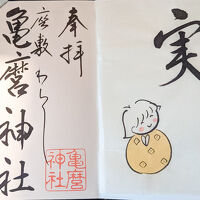 実
奉拝
座敷わらし
亀麿神社
亀麿
神社